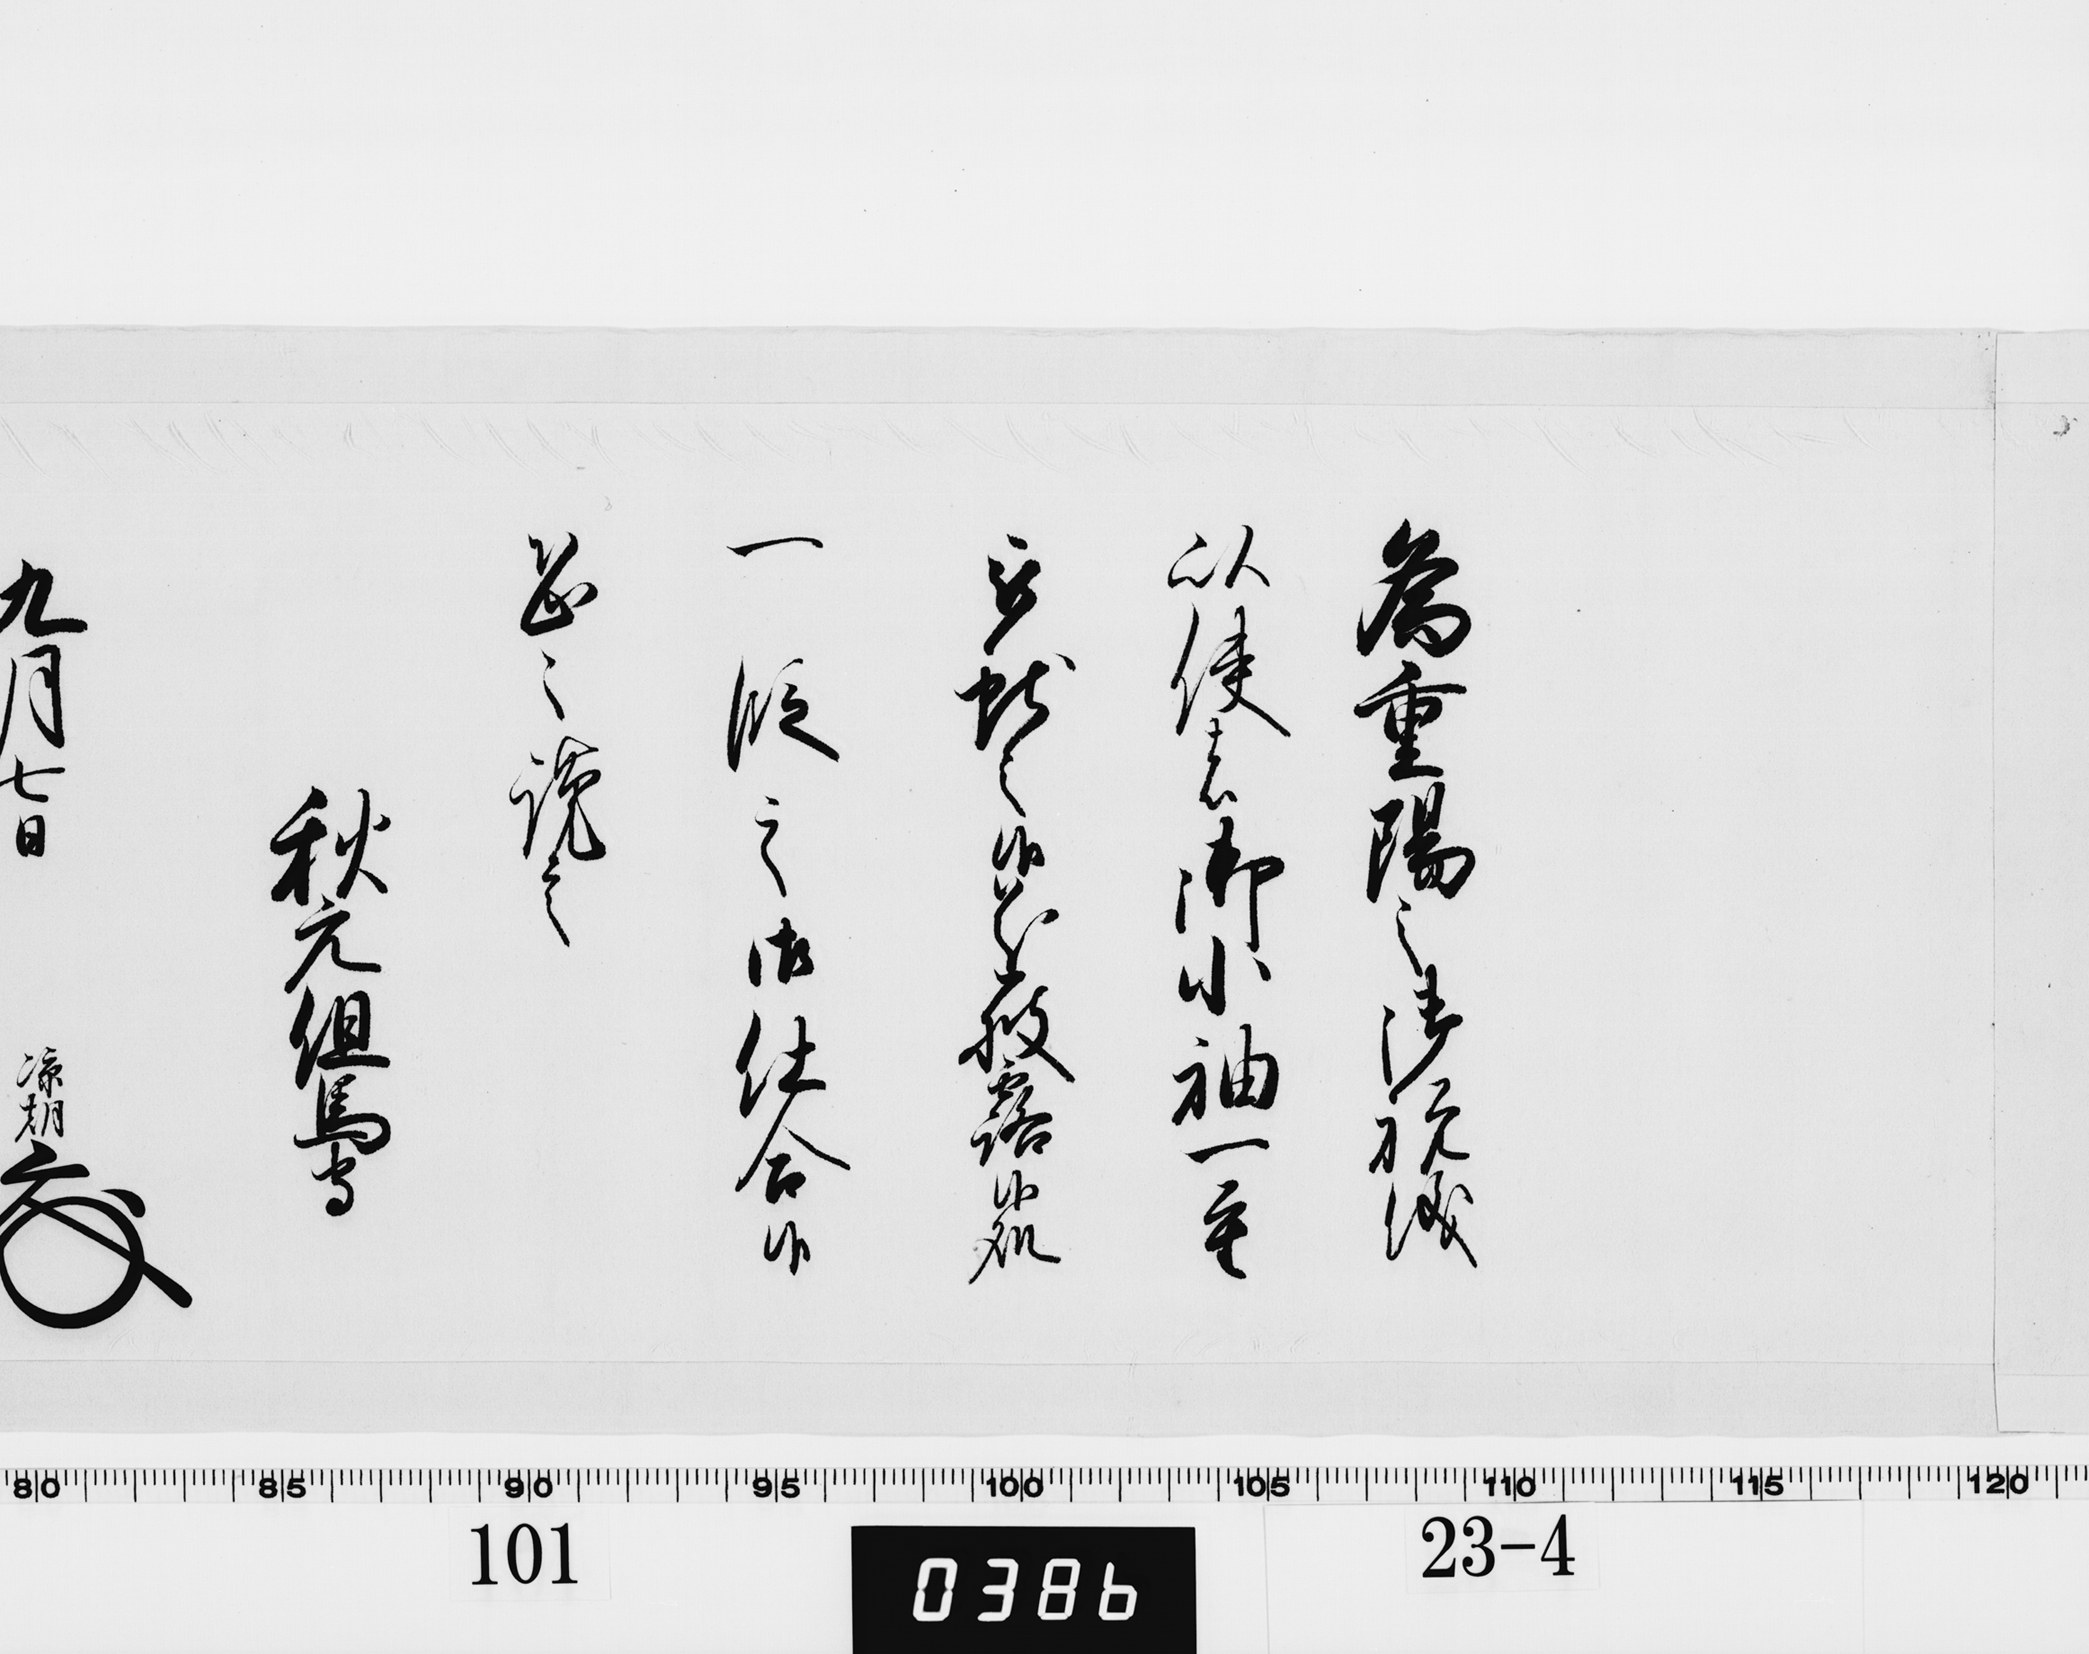 為重陽之御祝儀
以使者御小袖一重
献之候
披露候處
一段之御仕合候
恐々謹言
秋元但馬守
九月七日
涼朝
80 85 90 95 100 105 110 115 120
101
0386
23-4